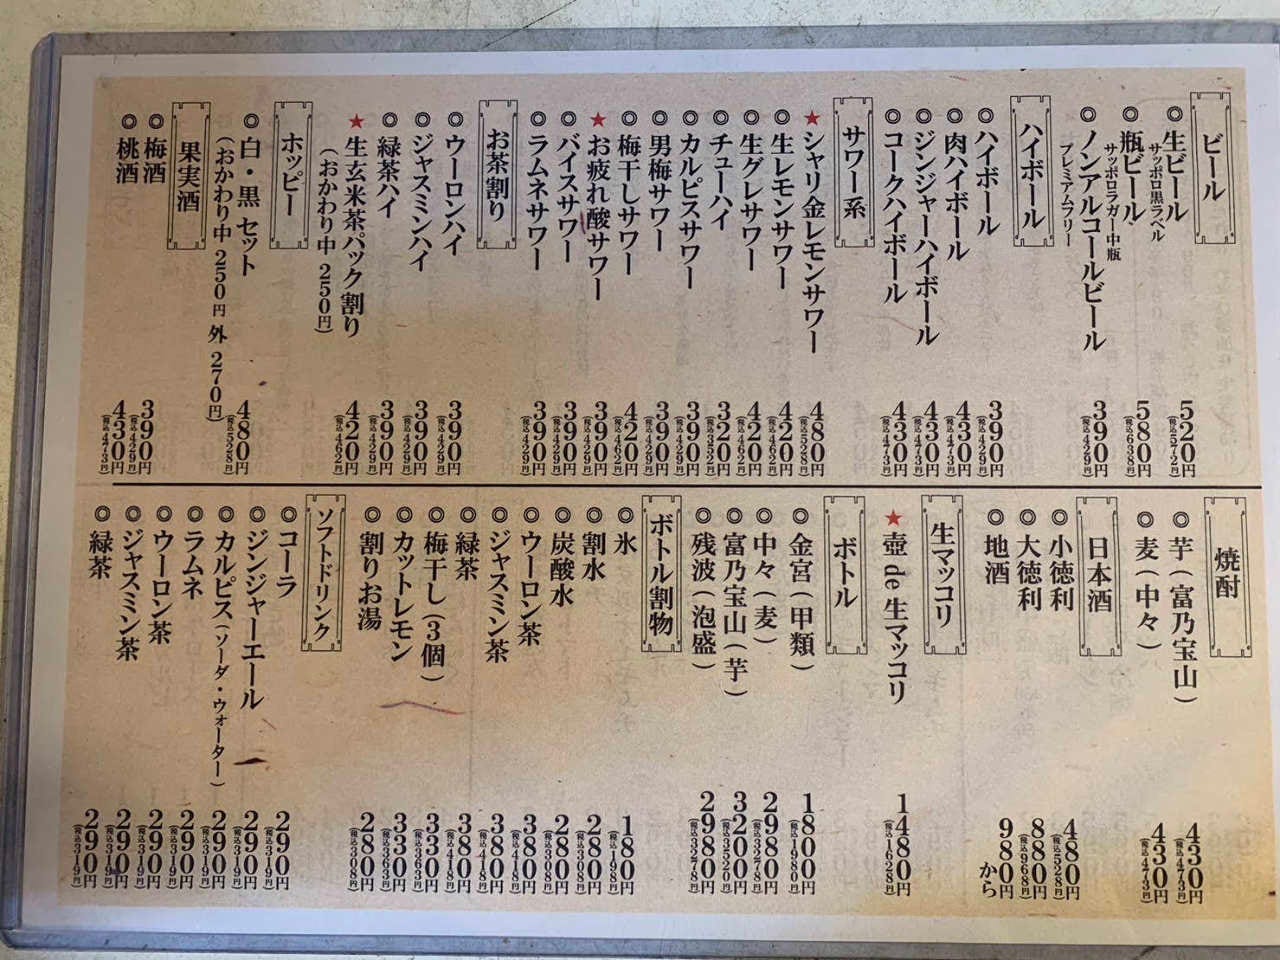 ビール
◎生ビール 520円(税込572円)
サッポロ黒ラベル
◎瓶ビール 580円(税込638円)
サッポロラガー中瓶
◎ノンアルコールビール 390円(税込429円)
プレミアムフリー
ハイボール
◎ハイボール 390円(税込429円)
◎肉ハイボール 430円(税込473円)
◎ジンジャーハイボール 430円(税込473円)
◎コークハイボール 430円(税込473円)
サワー系
★シャリ金レモンサワー 480円(税込528円)
◎生レモンサワー 420円(税込462円)
◎生グレサワー 420円(税込462円)
◎チューハイ 320円(税込352円)
◎カルピスサワー 390円(税込429円)
◎男梅サワー 390円(税込429円)
◎梅干しサワー 420円(税込462円)
★お疲れ酸サワー 390円(税込429円)
◎バイスサワー 390円(税込429円)
◎ラムネサワー 390円(税込429円)
お茶割り
◎ウーロンハイ 390円(税込429円)
◎ジャスミンハイ 390円(税込429円)
◎緑茶ハイ 390円(税込429円)
★生玄米茶パック割り 420円(税込462円)
(おかわり中 250円)
ホッピー
◎白・黒 セット 480円(税込528円)
(おかわり中 250円 外 270円)
果実酒
◎梅酒 390円(税込429円)
◎桃酒 430円(税込473円)
焼酎
◎芋(富乃宝山) 430円(税込473円)
◎麦(中々) 430円(税込473円)
日本酒
◎小徳利 480円(税込528円)
◎大徳利 880円(税込968円)
◎地酒 980円から
生マッコリ
★壺 de 生マッコリ 1480円(税込1628円)
ボトル
◎金宮(甲類) 1800円(税込1980円)
◎中々(麦) 2980円(税込3278円)
◎富乃宝山(芋) 3200円(税込3520円)
◎残波(泡盛) 2980円(税込3278円)
ボトル割物
◎氷 180円(税込198円)
◎割水 280円(税込308円)
◎炭酸水 280円(税込308円)
◎ウーロン茶 380円(税込418円)
◎ジャスミン茶 380円(税込418円)
◎緑茶 380円(税込418円)
◎梅干し(3個) 330円(税込363円)
◎カットレモン 330円(税込363円)
◎割りお湯 280円(税込308円)
ソフトドリンク
◎コーラ 290円(税込319円)
◎ジンジャーエール 290円(税込319円)
◎カルピス(ソーダ・ウォーター) 290円(税込319円)
◎ラムネ 290円(税込319円)
◎ウーロン茶 290円(税込319円)
◎ジャスミン茶 290円(税込319円)
◎緑茶 290円(税込319円)